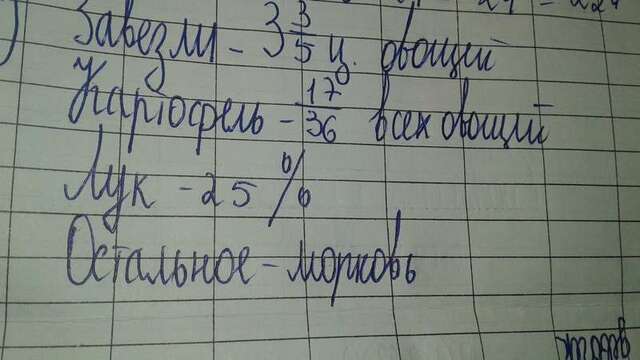 Завезли - 3 3/5 ц. овощей
Картофель - 17/36 всех овощей
Лук - 25 %
Остальное - морковь